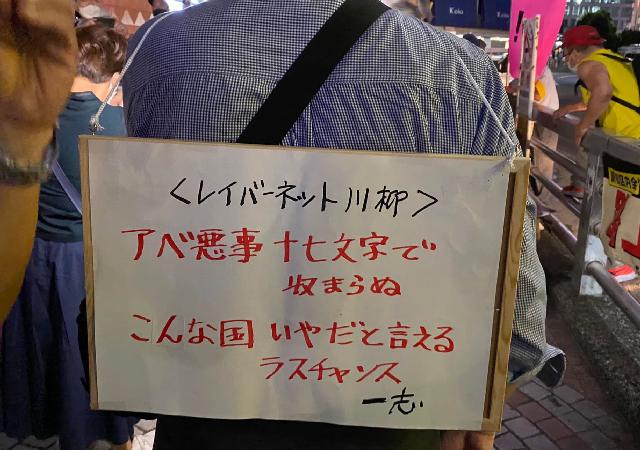 ＜レイバーネット川柳＞
アベ悪事 十七文字で
収まらぬ
こんな国 いやだと言える
ラスチャンス
一志
Koio